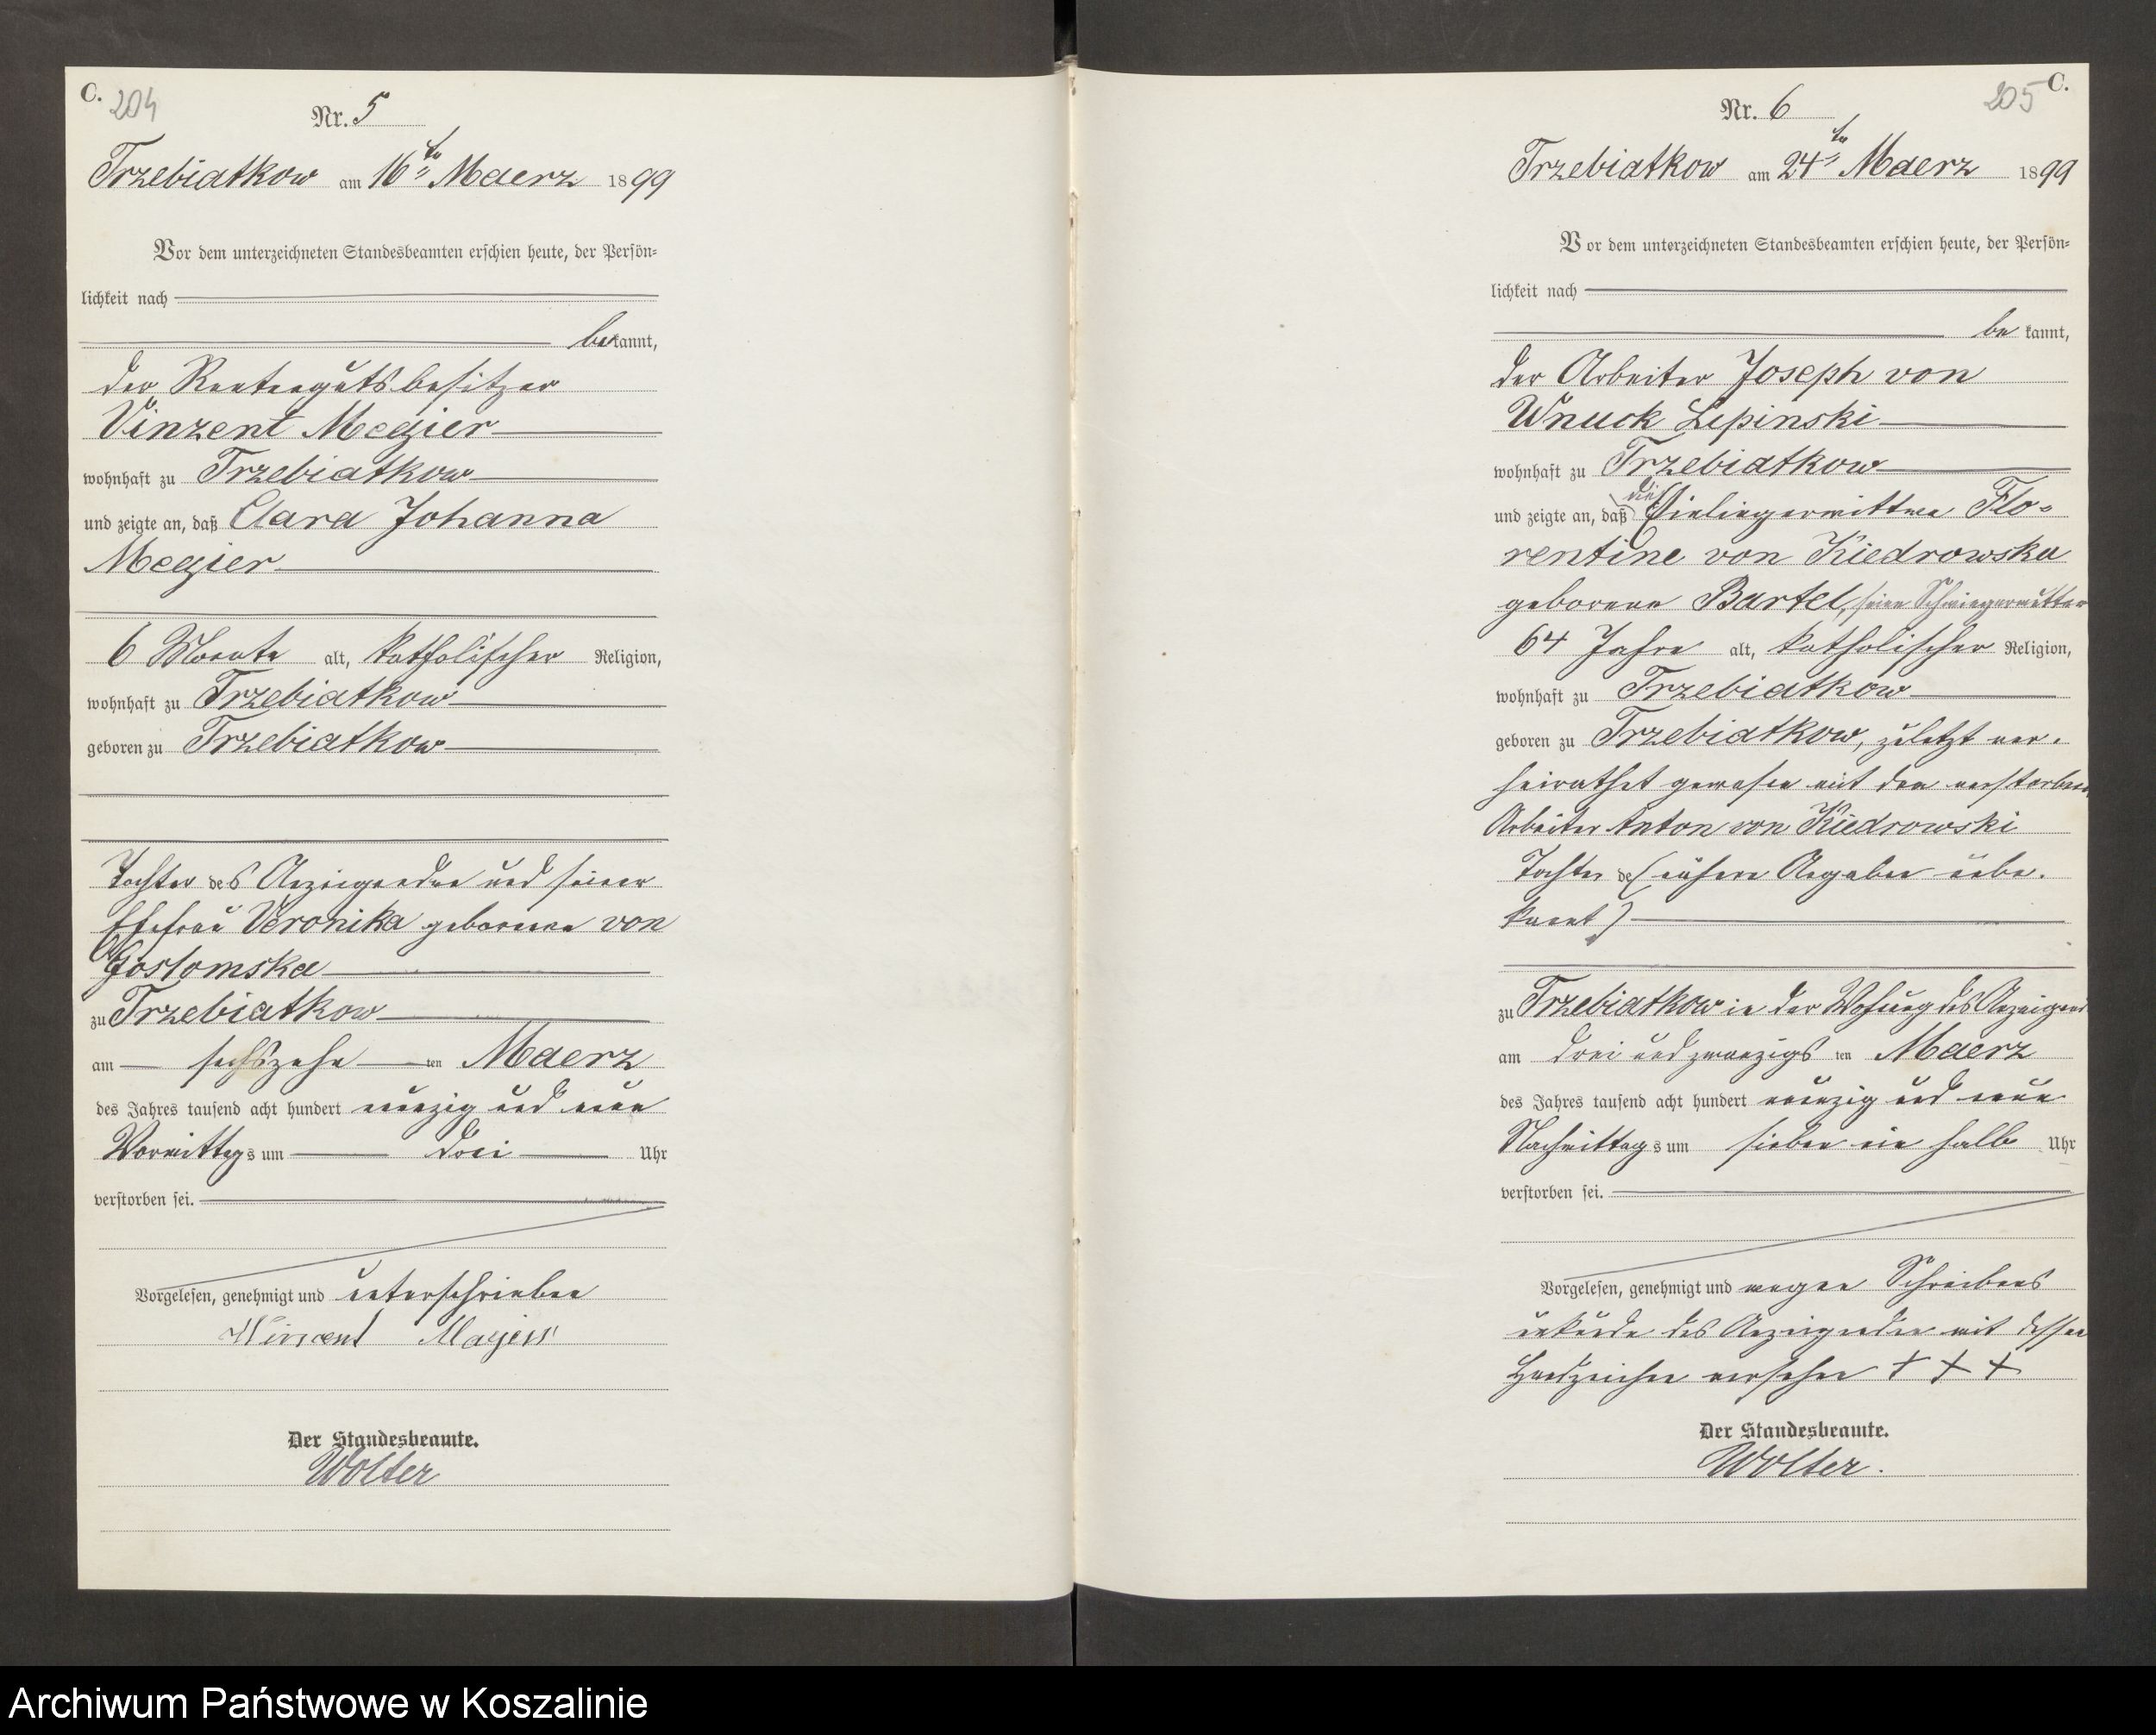 C. 204
Nr. 5
Trzebiatkow am 16ten Maerz 1899
Vor dem unterzeichneten Standesbeamten erschien heute, der Persön-
lichkeit nach
bekannt,
der Rentengutsbesitzer
Vinzent Megier
wohnhaft zu Trzebiatkow
und zeigte an, daß Clara Johanna
Megier
6 Monate alt, katholischer Religion,
wohnhaft zu Trzebiatkow
geboren zu Trzebiatkow
Tochter des Anzeigenden und seiner
Ehefrau Veronika geborenen von
Gostomska
zu Trzebiatkow
am sechszehnten Maerz
des Jahres tausend acht hundert neunzig und neun
Vormittags um drei Uhr
verstorben sei.
Vorgelesen, genehmigt und unterschrieben
Der Standesbeamte.
Wolter
205 C.
Nr. 6
Trzebiatkow am 24ten Maerz 1899
Vor dem unterzeichneten Standesbeamten erschien heute, der Persön-
lichkeit nach
be kannt,
der Arbeiter Joseph von
Wnuck Lepinski
wohnhaft zu Trzebiatkow
und zeigte an, daß die Einliegerwittwe Flo-
rentine von Kiedrowska
geborene Bartel, seine Schwiegermutter
64 Jahre alt, katholischer Religion,
wohnhaft zu Trzebiatkow
geboren zu Trzebiatkow, zuletzt ver-
heirathet gewesen mit dem verstorbenen
Arbeiter Anton von Kiedrowski
Tochter de (nähere Angaben unbe-
kannt)
zu Trzebiatkow in der Wohnung des Anzeigend
am drei und zwanzigsten Maerz
des Jahres tausend acht hundert neunzig und neun
Nachmittags um sieben ein halb Uhr
verstorben sei.
Vorgelesen, genehmigt und wegen Schreibens
unkunde des Anzeigenden mit dessen
Handzeichen versehen + + +
Der Standesbeamte.
Wolter.
Archiwum Państwowe w Koszalinie